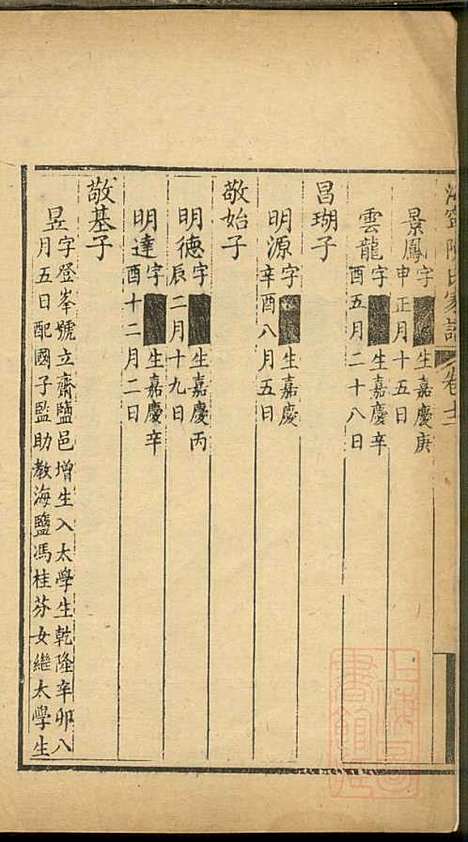 海寧陳氏家譜 卷十二
景鳳 字■生嘉慶庚
申正月十五日
雲龍 字■生嘉慶辛
酉五月二十八日
昌瑚子
明源 字■生嘉慶
辛酉八月五日
敬始子
明德 字■生嘉慶丙
辰二月十九日
明達 字■生嘉慶辛
酉十二月二日
敬基子
昱 字登峯號立齋鹽邑增生入太學生乾隆辛卯八
月五日配國子監助教海鹽馮桂芬女繼太學生
上海圖書館藏